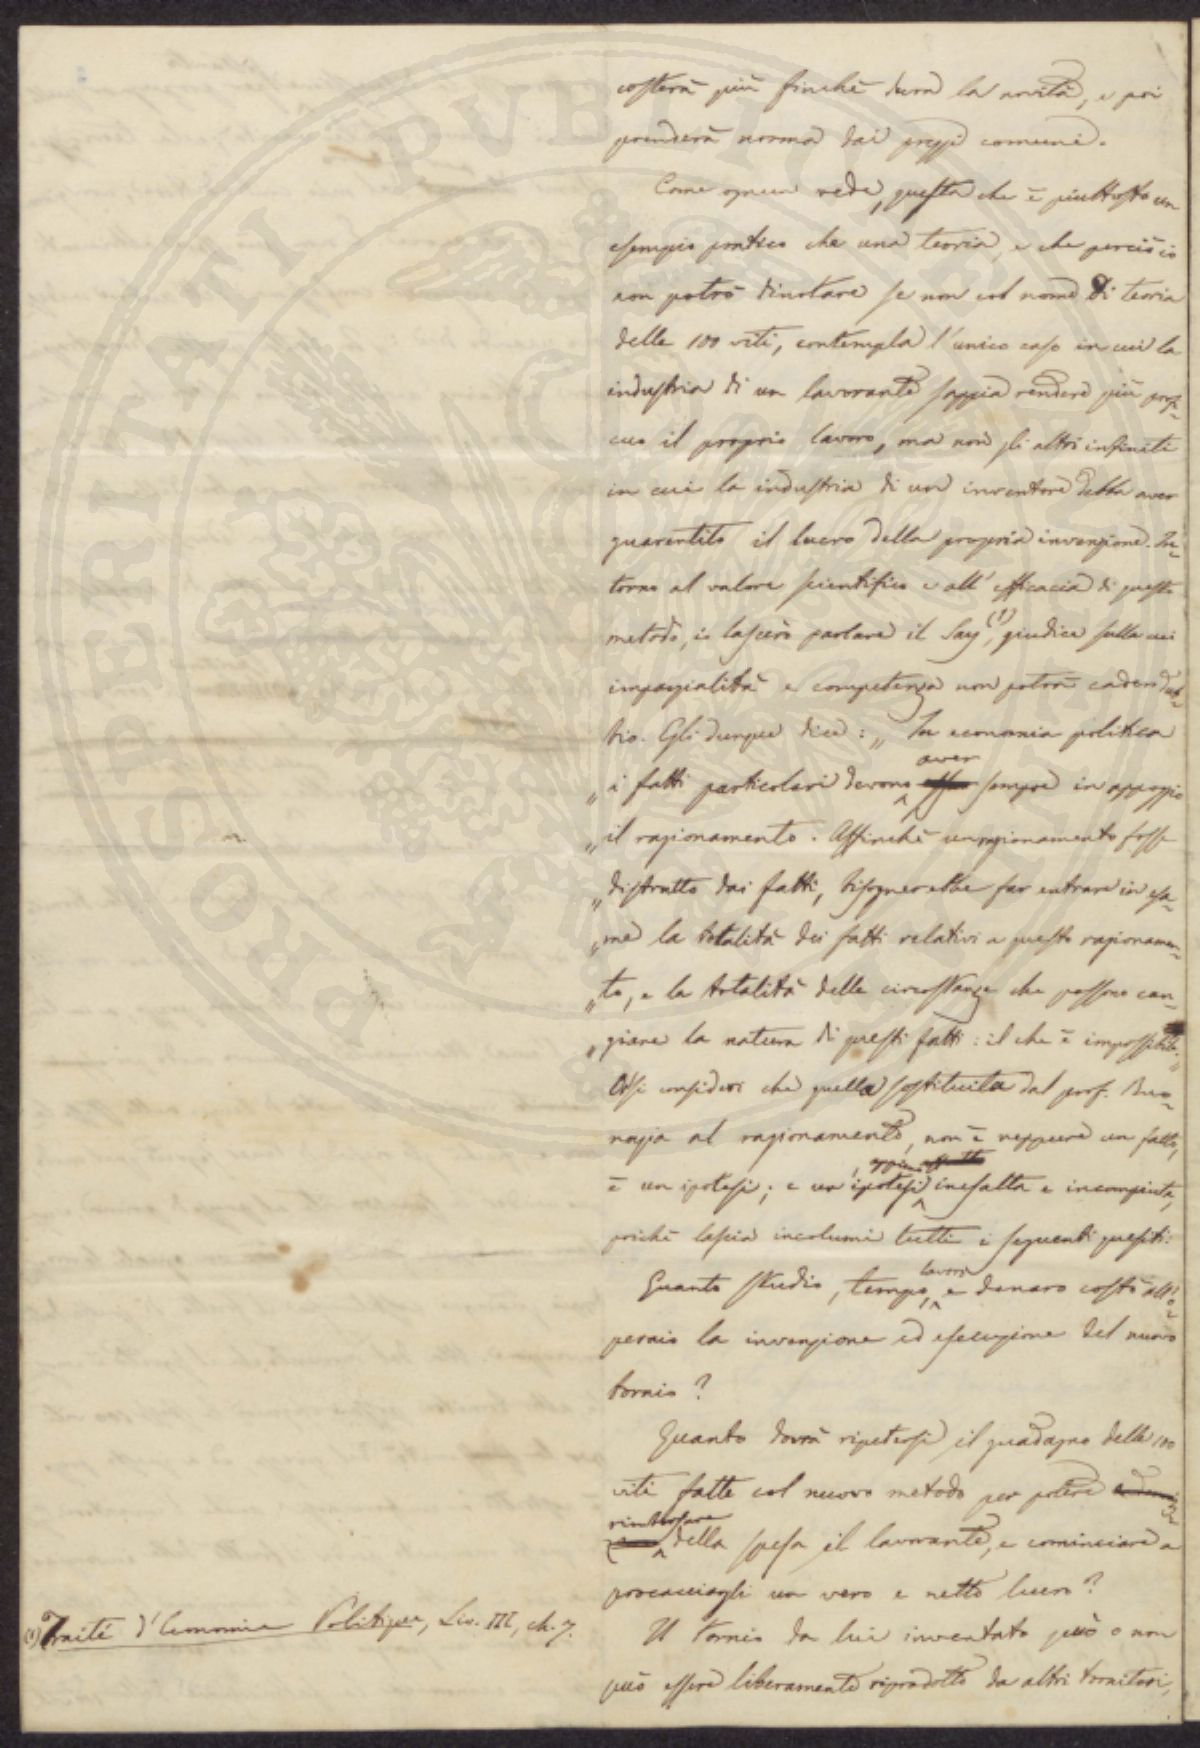 costerà più finchè dura la novità, e poi
prenderà norma dai prezzi comuni.
Come ognun vede, questa che è piuttosto un
esempio pratico che una teoria, e che perciò io
non potrò dinotare se non col nome di teoria
delle 100 viti, contempla l'unico caso in cui la
industria di un lavorante sappia rendere più profi-
cuo il proprio lavoro, ma non gli altri infiniti
in cui la industria di un inventore debba aver
guarentito il lucro della propria invenzione. In-
torno al valore scientifico e all'efficacia di questo
metodo, io lascerò parlare il Say (1), giudice sulla cui
imparzialità e competenza non potrà cader dub-
bio. Egli dunque dice: „ In economia politica
„ i fatti particolari devono aver sempre in appoggio
„ il ragionamento. Affinchè un ragionamento fosse
„ distrutto dai fatti, bisognerebbe far entrare in esa-
„ me la totalità dei fatti relativi a questo ragionamen-
„ to, e la totalità delle circostanze che possono can-
„ giare la natura di questi fatti: il che è impossibile. „
Or si consideri che quella sostituita dal prof. Bru-
nazia al ragionamento, non è neppure un fatto,
è un ipotesi; e un ipotesi inesatta e incompiuta,
poichè lascia incolumi tutti i seguenti quesiti:
Quanto studio, tempo, lavoro e denaro costò all'o-
peraio la invenzione ed esecuzione del nuovo
tornio?
Quanto dovrà ripetersi il guadagno delle 100
viti fatte col nuovo metodo per potere
rimborsare della spesa il lavorante, e cominciare a
procacciargli un vero e netto lucro?
Il tornio da lui inventato può o non
può essere liberamente riprodotto da altri tornitori,
(1) Traité d'Economie Politique, Liv. III, ch. 7.
PROSPERITATI PVBLICAE